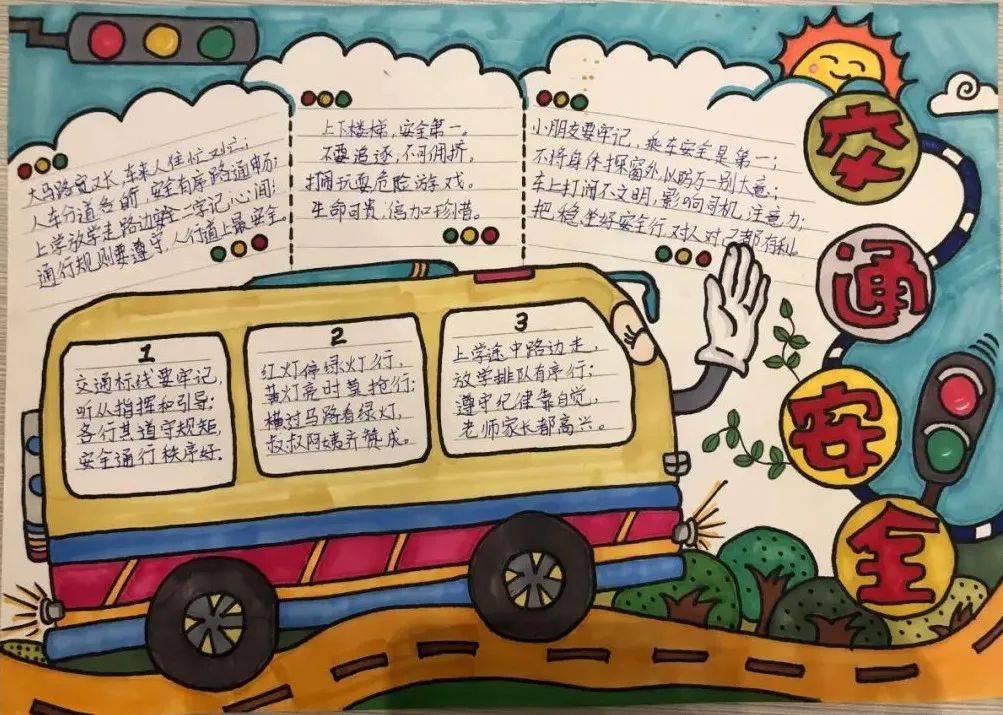 交
通
安
全
大马路宽又长,车来人往忙又忙;
人车分道各自前,安全有序路通畅;
上学放学走路边,安全二字记心间;
通行规则要遵守,人行道上最安全。
上下楼梯,安全第一。
不要追逐,不可佣挤,
打闹玩耍危险游戏。
生命可贵,倍加珍惜。
小朋友要牢记,乘车安全是第一;
不将身体探窗外,以防万一别大意;
车上打闹不文明,影响司机注意力;
把稳坐好安全行,对人对己都有利。
1
交通标线要牢记,
听从指挥和引导;
各行其道守规矩,
安全通行秩序好。
2
红灯停绿灯行,
黄灯亮时莫抢行;
横过马路看绿灯,
叔叔阿姨齐赞成。
3
上学途中路边走,
放学排队有序行;
遵守纪律靠自觉,
老师家长都高兴。